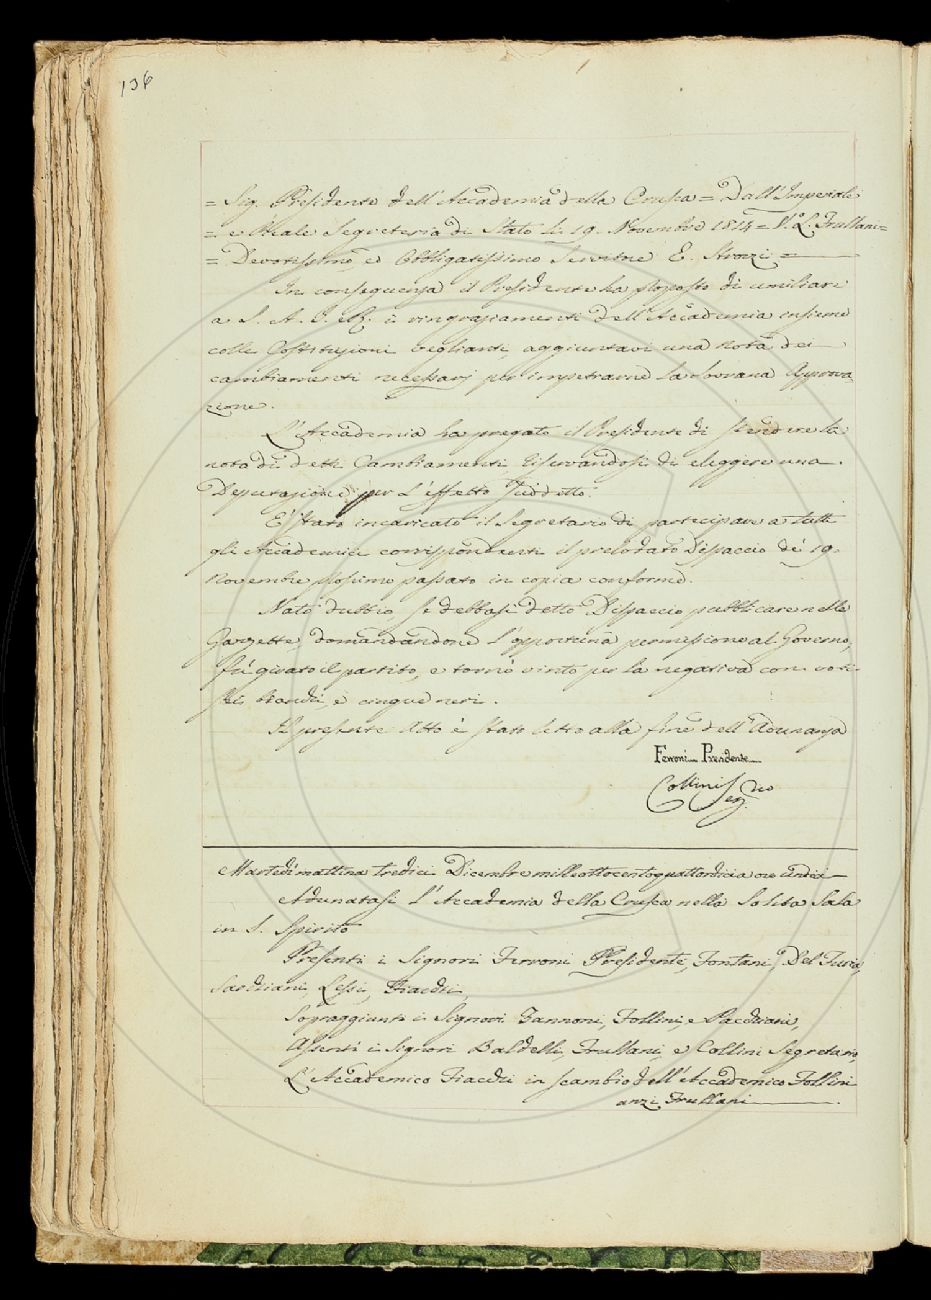 136
= Sig. Presidente dell'Accademia della Crusca = Dall'Imperiale
= e Reale Segreteria di Stato li 19. Novembre 1814 = V.° L. Frullani =
= Devotissimo ed Obbligatissimo Servitore E. Strozzi =
In conseguenza il Presidente ha proposto di umiliare
a S. A. I. e R. i ringraziamenti dell'Accademia insieme
colle Costituzioni veglianti, aggiuntavi una nota dei
cambiamenti necessarj per impetrarne la Sovrana Approva
zione.
L'Accademia ha pregato il Presidente di stendere la
nota di detti Cambiamenti riservandosi di eleggere una
Deputazione per l'effetto suddetto.
E' stato incaricato il Segretario di partecipare a tutti
gli Accademici corrispondenti il prelodato Dispaccio de' 19.
Novembre prossimo passato in copia conforme.
Nato dubbio, se debbasi detto Dispaccio pubblicare nelle
Gazzette, domandandone l'opportuna permissione al Governo,
fù girato il partito, e tornò vinto per la negativa con voti
sei bianchi, e cinque neri.
Il presente Atto è stato letto alla fine dell'Adunanza
Ferroni Presidente
Collini Seg.rio
Martedì mattina tredici Dicembre milleottocentoquattordici a ore undici
Adunatasi l'Accademia della Crusca nella solita Sala
in S. Spirito
Presenti i Signori Ferroni Presidente, Fontani, Del Furia,
Sarchiani, Lessi, Fiacchi,
Sopraggiunti i Signori Zannoni, Follini, e Pacchiani,
Assenti i Signori Baldelli, Frullani, e Collini Segretario,
L'Accademico Fiacchi in scambio dell'Accademico Follini
anzi Frullani